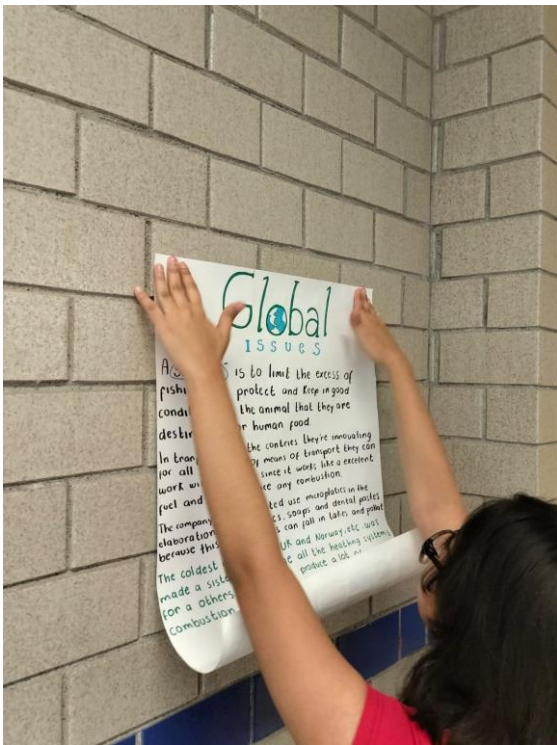 Global
ISSUES
A is to limit the excess of
fishi protect and Keep in good
condi the animal that they are
desti r human food.
In tran the contries they're innovating
for all means of transport they can
work w since it works like a excelent
fuel and ce any combustion.
The company ted use microplatics in the
elaboration cs, soaps and dental pastes
because this can fall in lakes and pollut
The coldest UK and Norway, etc. was
made a siste e all the heating systems
for a others produce a lot
combustion